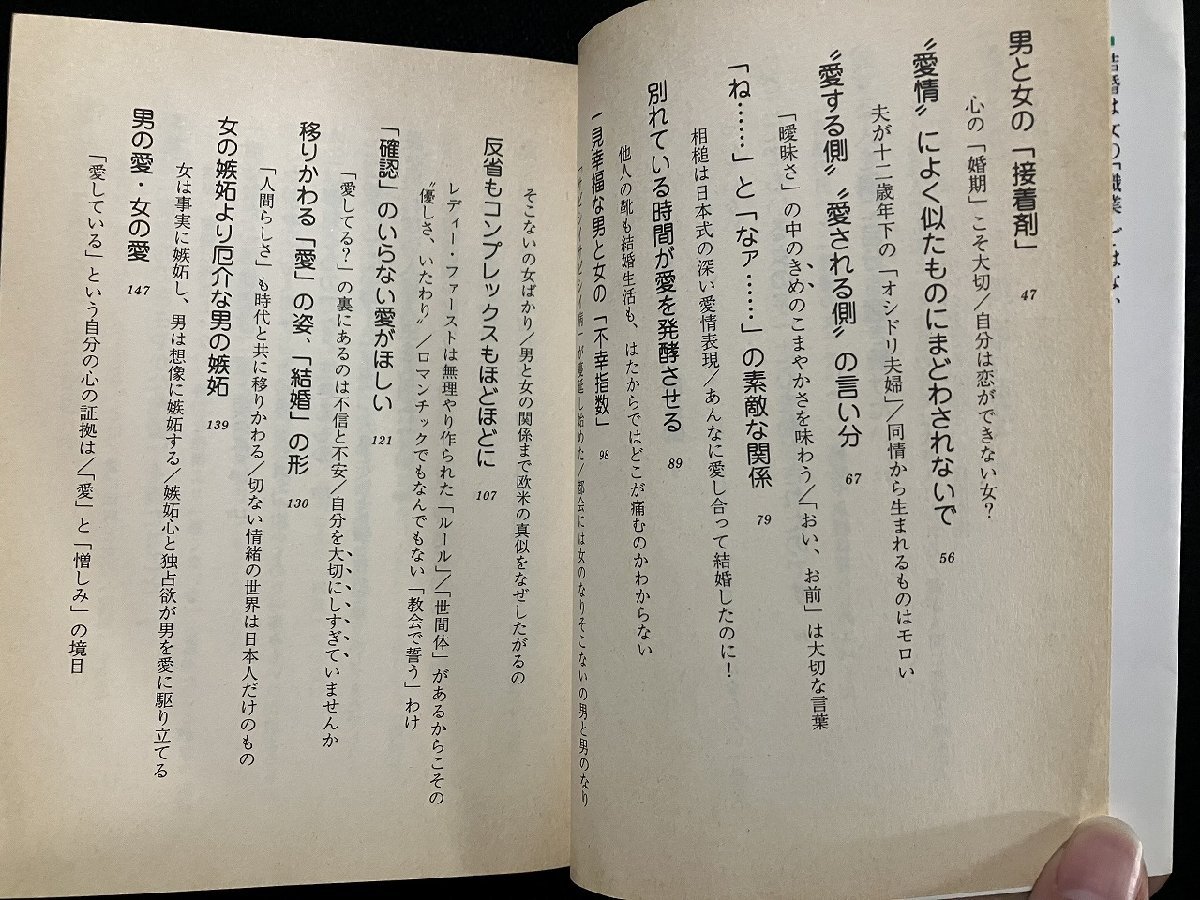 結婚は女の「職業」ではない
男と女の「接着剤」 47
心の「婚期」こそ大切/自分は恋ができない女?
〝愛情〟によく似たものにまどわされないで 56
夫が十二歳年下の「オシドリ夫婦」/同情から生まれるものはモロい
〝愛する側〟〝愛される側〟の言い分 67
「曖昧さ」の中のきめのこまやかさを味わう/「おい、お前」は大切な言葉
「ね……」と「なァ……」の素敵な関係 79
相槌は日本式の深い愛情表現/あんなに愛し合って結婚したのに!
別れている時間が愛を発酵させる 89
他人の靴も結婚生活も、はたからではどこが痛むのかわからない
一見幸福な男と女の「不幸指数」 98
「サビシイサビシイ病」が蔓延し始めた/都会には女のなりそこないの男と男のなり
そこないの女ばかり/男と女の関係まで欧米の真似をなぜしたがるの
反省もコンプレックスもほどほどに 107
レディー・ファーストは無理やり作られた「ルール」/「世間体」があるからこその
〝優しさ、いたわり〟/ロマンチックでもなんでもない「教会で誓う」わけ
「確認」のいらない愛がほしい 121
「愛してる?」の裏にあるのは不信と不安/自分を大切にしすぎていませんか
移りかわる「愛」の姿、「結婚」の形 130
「人間らしさ」も時代と共に移りかわる/切ない情緒の世界は日本人だけのもの
女の嫉妬より厄介な男の嫉妬 139
女は事実に嫉妬し、男は想像に嫉妬する/嫉妬心と独占欲が男を愛に駆り立てる
男の愛・女の愛 147
「愛している」という自分の心の証拠は/「愛」と「憎しみ」の境目